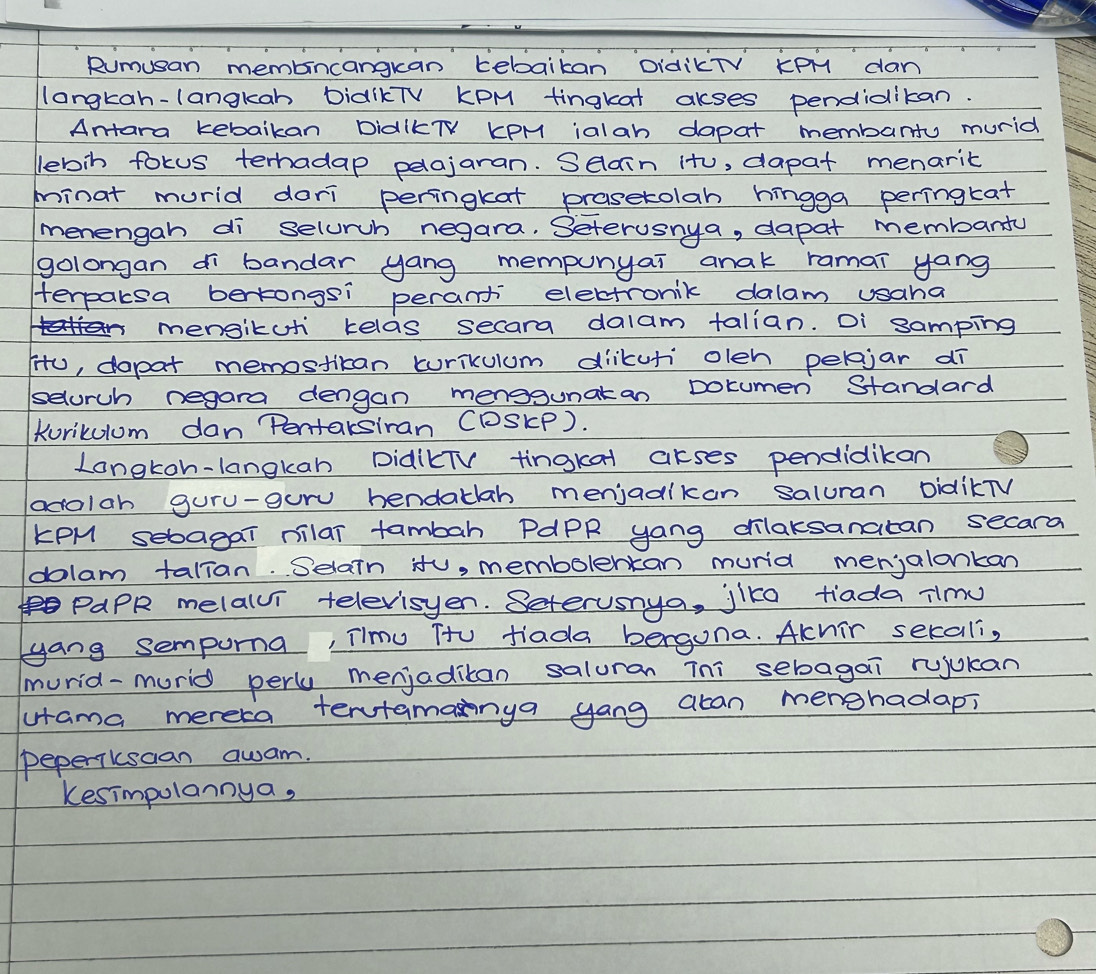 Rumusan membincangkan kebaikan DidikTV KPM dan
langkah-langkah DidikTV KPM tingkat akses pendidikan.
Antara kebaikan DidikTV KPM ialah dapat membantu murid
lebih fokus terhadap pelajaran. Selain itu, dapat menarik
minat murid dari peringkat prasekolah hingga peringkat
menengah di seluruh negara. Seterusnya, dapat membantu
golongan di bandar yang mempunyai anak ramai yang
terpaksa berkongsi peranti elektronik dalam usaha
talian mengikuti kelas secara dalam talian. Di samping
itu, dapat memastikan kurikulum diikuti oleh pelajar di
seluruh negara dengan menggunakan Dokumen Standard
Kurikulum dan Pentaksiran (DSKP).
Langkah-langkah DidikTV tingkat akses pendidikan
adalah guru-guru hendaklah menjadikan saluran DidikTV
KPM sebagai nilai tambah PdPR yang dilaksanakan secara
dalam talian. Selain itu, membolehkan murid menjalankan
PdPR melalui televisyen. Seterusnya, jika tiada ilmu
yang sempurna, ilmu itu tiada berguna. Akhir sekali,
murid-murid perlu menjadikan saluran ini sebagai rujukan
utama mereka terutamanya yang akan menghadapi
peperiksaan awam.
Kesimpulannya,